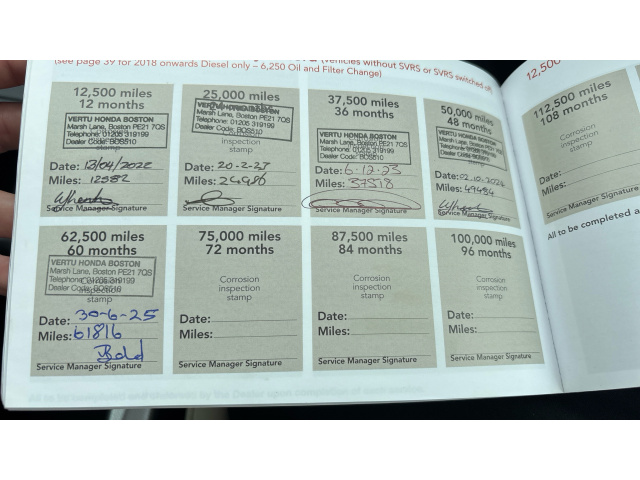 (see page 39 for 2018 onwards Diesel only – 6,250 Oil and Filter Change)
(Vehicles without SVRS or SVRS switched off)
12,500 miles
12 months
VERTU HONDA BOSTON
Marsh Lane, Boston PE21 7QS
Telephone: 01205 319199
Dealer Code: BOS510
Date: 13/04/2022
Miles: 12582
Service Manager Signature
25,000 miles
VERTU HONDA BOSTON
Marsh Lane, Boston PE21 7QS
Telephone: 01205 319199
Dealer Code: BOS510
inspection
stamp
Date: 20-2-23
Miles: 24980
Service Manager Signature
37,500 miles
36 months
VERTU HONDA BOSTON
Marsh Lane, Boston PE21 7QS
Telephone: 01205 319199
Dealer Code: BOS510
stamp
Date: 6-12-23
Miles: 37518
Service Manager Signature
50,000 miles
48 months
VERTU HONDA BOSTON
Marsh Lane, Boston PE21 7QS
Telephone: 01205 319199
Dealer Code: BOS510
stamp
Date: 02.10.2024
Miles: 49484
Service Manager Signature
112,500 miles
108 months
Corrosion
inspection
stamp
Date:
Miles:
Service Manager Signature
62,500 miles
60 months
VERTU HONDA BOSTON
Marsh Lane, Boston PE21 7QS
Telephone: 01205 319199
Dealer Code: BOS510
stamp
Date: 30-6-25
Miles: 61816
Service Manager Signature
75,000 miles
72 months
Corrosion
inspection
stamp
Date:
Miles:
Service Manager Signature
87,500 miles
84 months
Corrosion
inspection
stamp
Date:
Miles:
Service Manager Signature
100,000 miles
96 months
Corrosion
inspection
stamp
Date:
Miles:
Service Manager Signature
All to be completed a